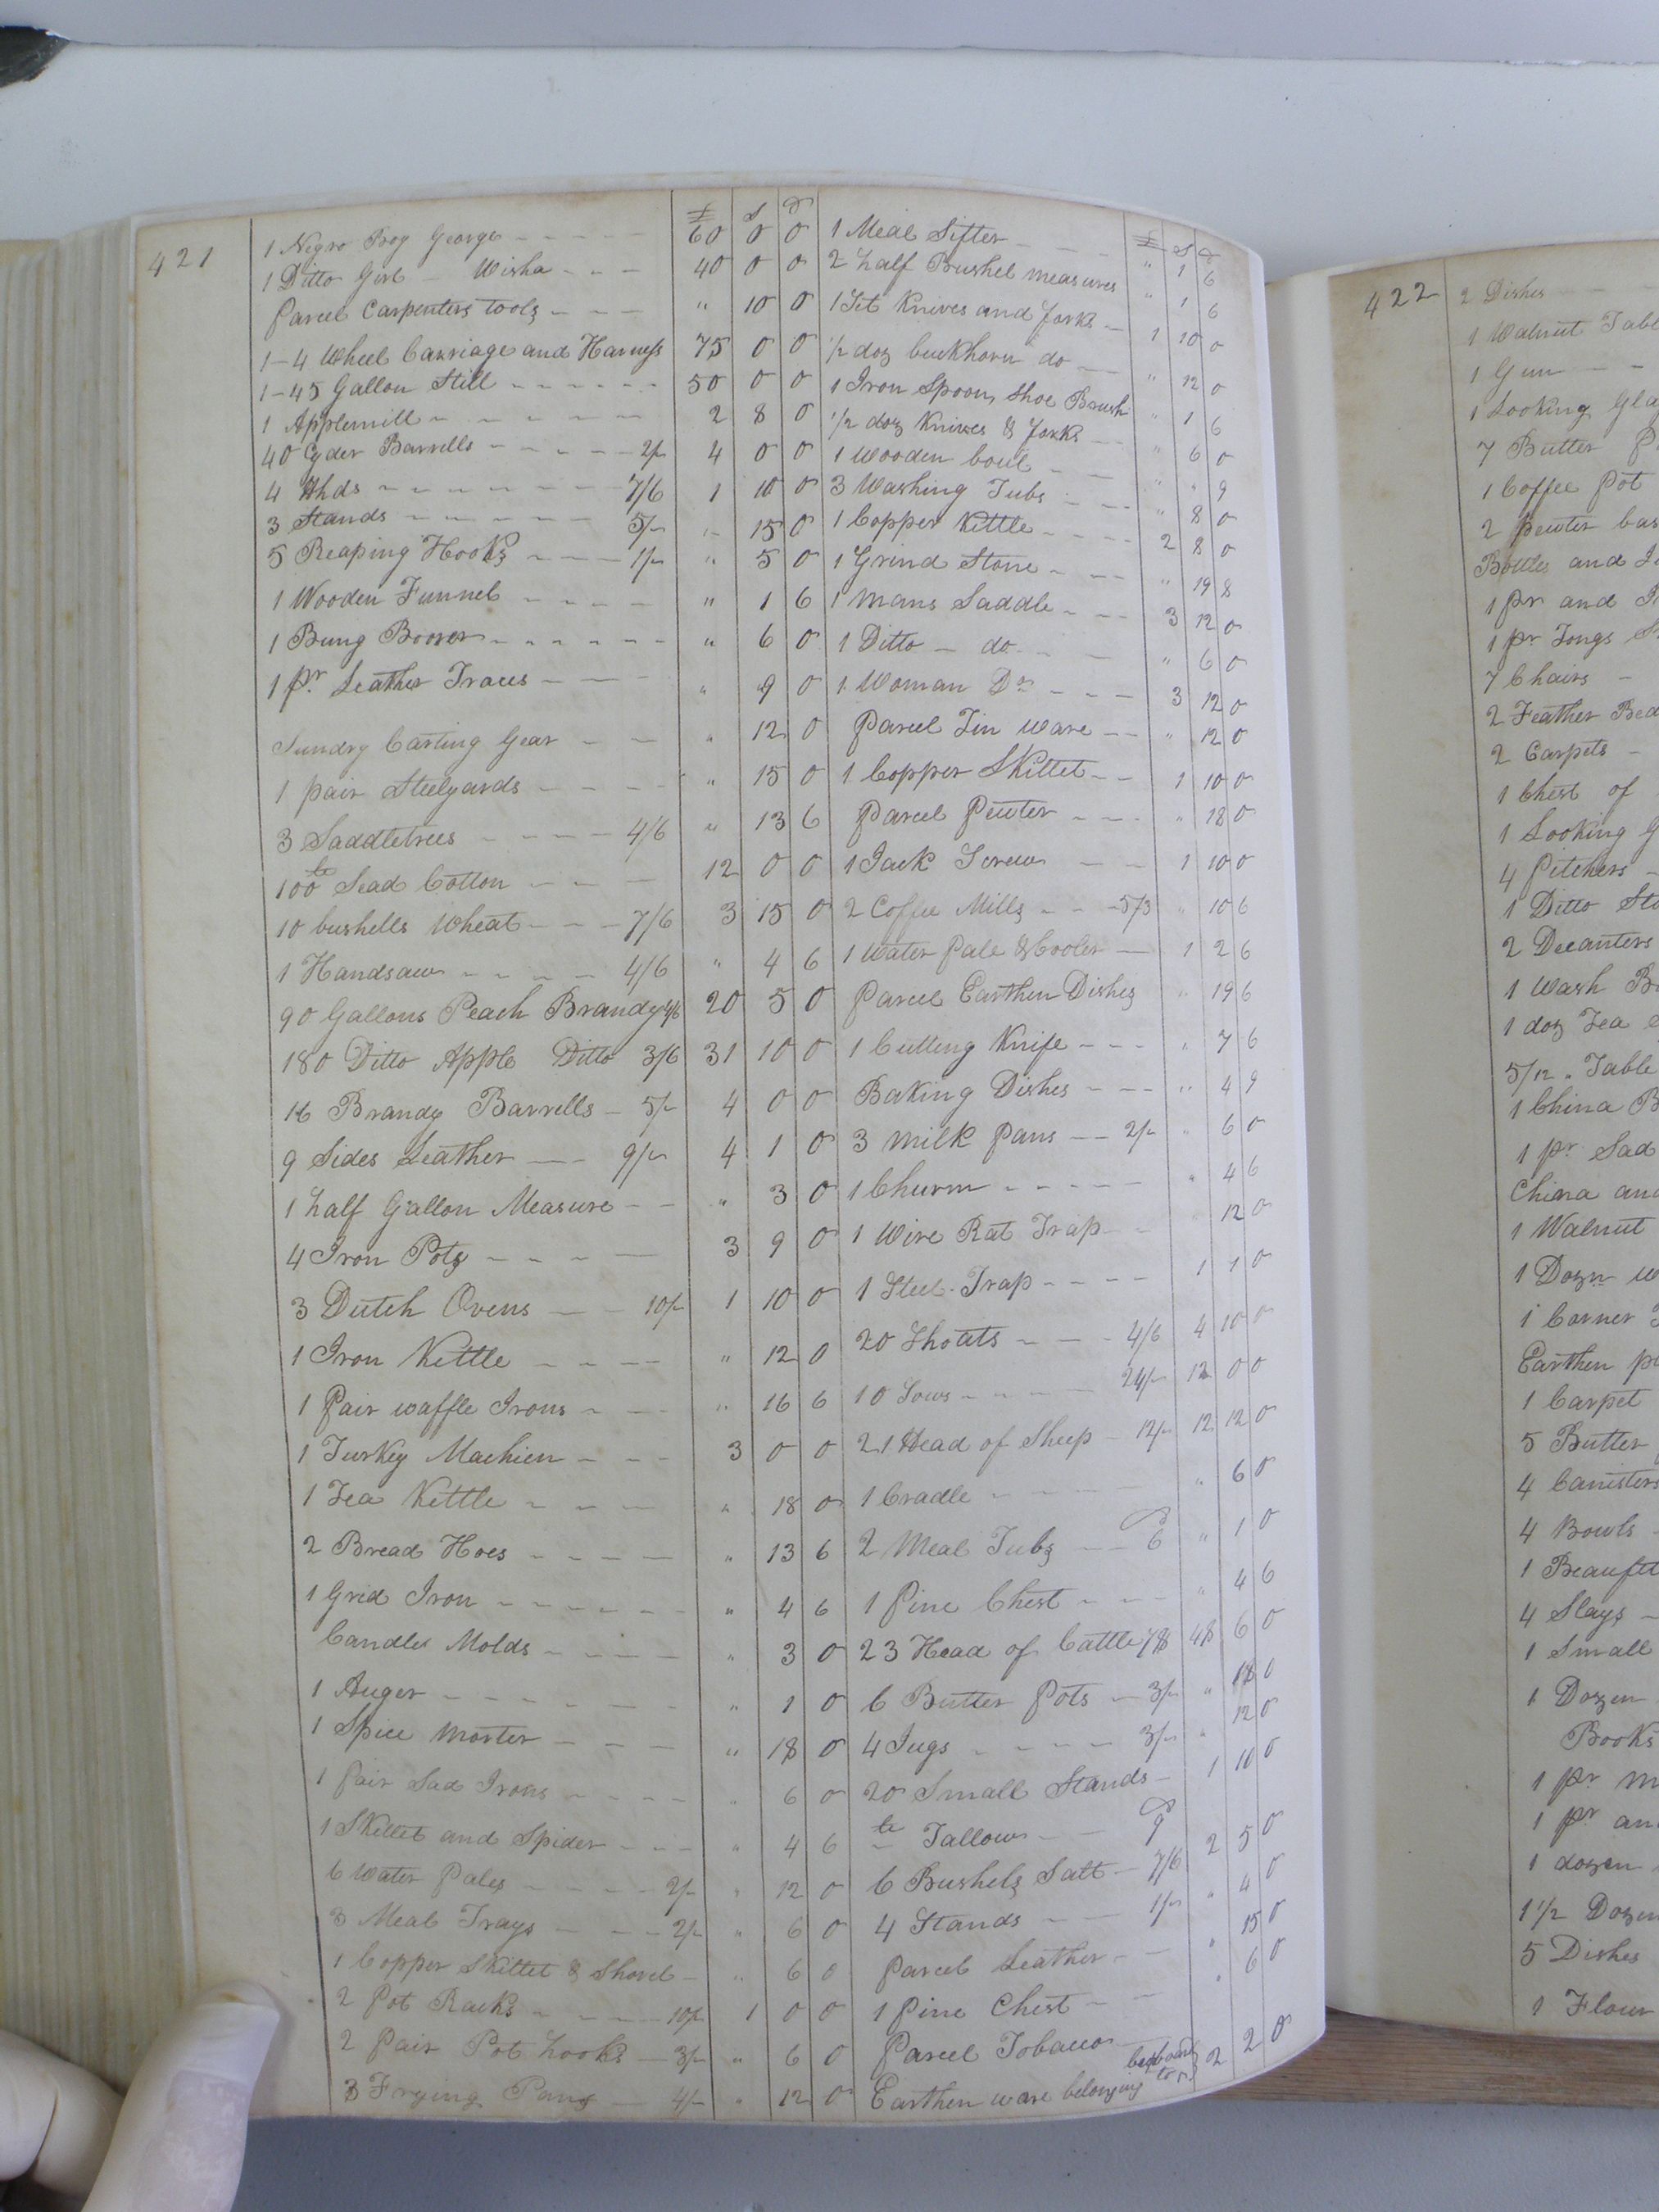 421
£ S D
1 Negro Boy George - - - - - 60 0 0
1 Ditto Girl - Wisha - - - 40 0 0
Parcel Carpenters tools - - - " 10 0
1-4 Wheel Carriage and Harness 75 0 0
1-45 Gallon Still - - - - - - 50 0 0
1 Applemill - - - - - - 2 8 0
40 Cyder Barrells - - - - - 2/- 4 0 0
4 Hhds - - - - - - - 7/6 1 10 0
3 Stands - - - - - - 5/- " 15 0
5 Reaping Hooks - - - 1/- " 5 0
1 Wooden Funnel - - - - " 1 6
1 Bung Boorer - - - - - - " 6 0
1 Pr. Leather Traces - - - - " 9 0
Sundry Carting Gear - - " 12 0
1 pair Steelyards - - - - - " 15 0
3 Saddletrees - - - - 4/6 " 13 6
100 lb Sead Cotton - - - 12 0 0
10 bushells Wheat - - - 7/6 3 15 0
1 Handsaw - - - - - 4/6 " 4 6
90 Gallons Peach Brandy 4/6 20 5 0
180 Ditto Apple Ditto 3/6 31 10 0
16 Brandy Barrells - 5/- 4 0 0
9 Sides Leather - - 9/- 4 1 0
1 half Gallon Measure - - " 3 0
4 Iron Pots - - - - 3 9 0
3 Dutch Ovens - - 10/- 1 10 0
1 Iron Kettle - - - - " 12 0
1 Pair waffle Irons - - - " 16 6
1 Turkey Machien - - - 3 0 0
1 Tea Kettle - - - - " 18 0
2 Bread Hoes - - - - - " 13 6
1 Grid Iron - - - - - - " 4 6
Candles Molds - - - - - " 3 0
1 Auger - - - - - - - " 1 0
1 Spice Morter - - - - " 18 0
1 Pair Sad Irons - - - - " 6 0
1 Skillet and Spider - - - " 4 6
6 Water Pales - - - - 2/- " 12 0
3 Meal Trays - - - 2/- " 6 0
1 Copper Skillet & Shovel - " 6 0
2 Pot Racks - - - - 10/- 1 0 0
2 Pair Pot hooks - 3/- " 6 0
3 Frying Pans - 4/- " 12 0
£ S D
1 Meal Sifter - - - " 1 6
2 half Bushel measures " 1 6
1 Set Knives and Forks - 1 10 0
1/2 doz buckhorn do - - " 12 0
1 Iron Spoon, Shoe Brush " 1 6
1/2 doz Knives & Forks - - " 6 0
1 Wooden boul - - " " 9
3 Washing Tubs - - - " 8 0
1 Copper Kettle - - - - 2 8 0
1 Grind Stone - - - " 19 8
1 Mans Saddle - - - 3 12 0
1 Ditto - do - - - " 6 0
1 Woman Do - - - 3 12 0
Parcel Tin Ware - - " 12 0
1 Copper Skillet - - 1 10 0
Parcel Peuter - - - " 18 0
1 Jack Screw - - 1 10 0
2 Coffee Mills - - - 5/3 " 10 6
1 Water Pale & Cooler - 1 2 6
Parcel Earthen Dishes " 19 6
1 Cutting Knife - - - " 7 6
Baking Dishes - - - " 4 9
3 Milk Pans - - 2/- " 6 0
1 Churm - - - - - " 4 6
1 Wire Rat Trap - - 12 0
1 Steel Trap - - - - 1 1 0
20 Shoats - - - 4/6 4 10 0
10 Sows - - - - - 24/- 12 0 0
21 Head of Sheep - 12/- 12 12 0
1 Cradle - - - - - " 6 0
2 Meal Tubs - - 6 " 1 0
1 Pine Chest - - - " 4 6
23 Head of Cattle 48 6 0
6 Butter Pots - 3/- " 18 0
4 Jugs - - - - - 3/- " 12 0
20 Small Stands - 1 10 0
lb Tallow - - 9
6 Bushels Salt - 7/6 2 5 0
4 Stands - - 1/- " 4 0
Parcel Leather - - " 15 0
1 Pine Chest - - " 6 0
Parcel Tobacco 2 2 0
Earthen ware belonging
422
2 Dishes - -
1 Walnut Tabl
1 Gun - -
1 Looking Gla
7 Butter P
1 Coffee Pot
2 Pewter bas
Bottles and J
1 pr and
1 pr Tongs
7 Chairs -
2 Feather Bed
2 Carpets -
1 Chest of
1 Looking G
4 Pitchers -
1 Ditto Sto
2 Decanters
1 Wash B
1 doz Tea
5/12. Table
1 China B
1 pr. Sad
China and
1 Walnut
1 Dozn w
1 Corner
Earthen p
1 Carpet
5 Butter
4 Canisters
4 Bowls -
1 Beaufet
4 Slays -
1 Small
1 Dozen
Books
1 pr m
1 pr an
1 dozen
1 1/2 Dozen
5 Dishes
1 Flour